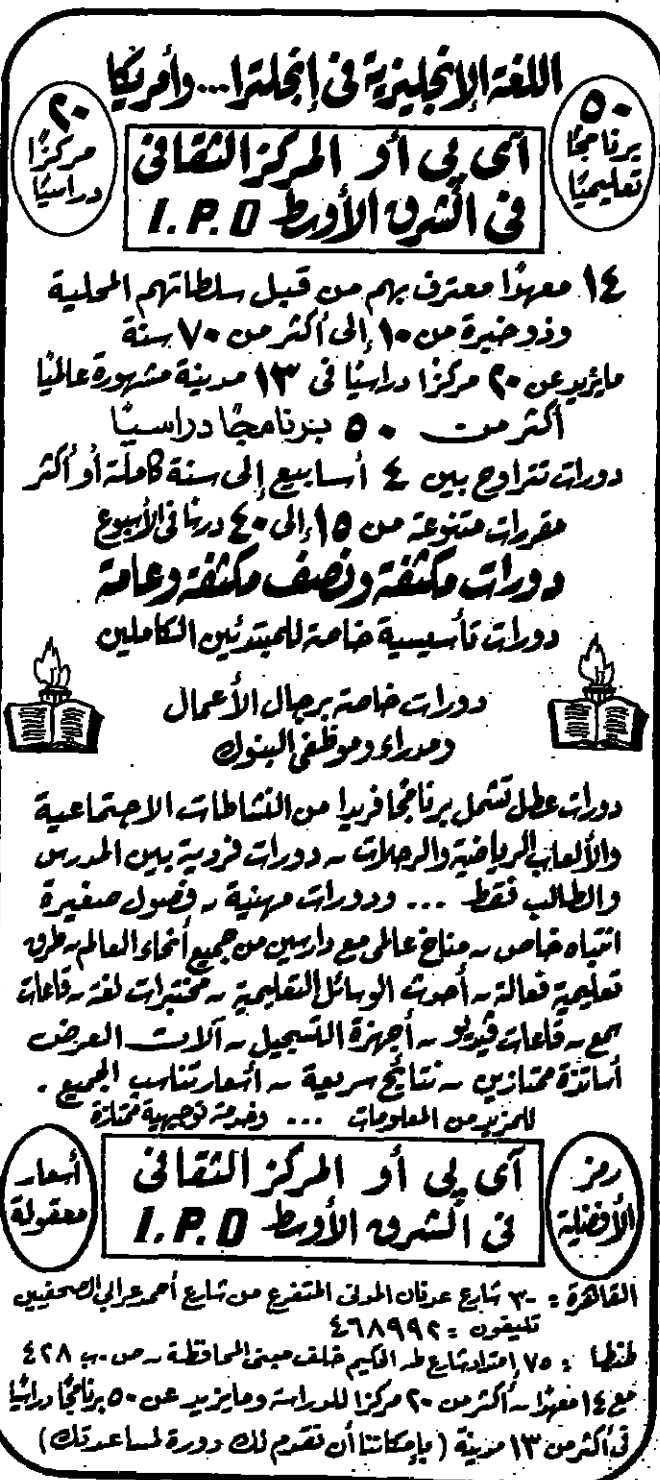 اللغة الإنجليزية فى إنجلترا... وأمريكا
٥٠
برنامجًا
تعليميًا
٢٠
مركزًا
دراسيًا
آى پى أو المركز الثقافى
فى الشرق الأوسط I.P.O
١٤ معهدًا معترف بهم من قبل سلطاتهم المحلية
وذو خبرة من ١٠ إلى أكثر من ٧٠ سنة
مايزيد عن ٢٠ مركزًا دراسيًا فى ١٣ مدينة مشهورة عالميًا
أكثر من ٥٠ برنامجًا دراسيًا
دورات تتراوح بين ٤ أسابيع إلى سنة كاملة أو أكثر
مقررات متنوعة من ١٥ إلى ٤٠ درسًا فى الأسبوع
دورات مكثفة ونصف مكثفة وعامة
دورات تأسيسية خاصة للمبتدئين الكاملين
دورات خاصة برجال الأعمال
ومدراء وموظفى البنوك
دورات عطل تشمل برنامجًا فريدا من النشاطات الاجتماعية
والألعاب الرياضية والرحلات ـ دورات فردية بين المدرس
والطالب فقط ... ودورات مهنية ـ فصول صغيرة
انتباه خاص ـ مناخ عالمى مع دارسين من جميع أنحاء العالم ـ طرق
تعليمية فعالة ـ أحدث الوسائل التعليمية ـ مختبرات لغة ـ قاعات
سمع ـ قاعات ڤيديو ـ أجهزة التسجيل ـ آلات العرض
أساتذة ممتازين ـ نتائج سريعة ـ أسعار تناسب الجميع .
للمزيد من المعلومات ... وخدمة توجيهية ممتازة
رمز
الأفضلية
أسعار
معقولة
آى پى أو المركز الثقافى
فى الشرق الأوسط I.P.O
القاهرة : ٣٠ شارع عدنان المدنى المتفرع من شارع أحمد عرابى الصحفيين
تليفون : ٤٦٨٩٩٢
طنطا : ٧٥ إمتداد شارع طه الحكيم خلف مبنى المحافظة ـ ص.ب ٤٢٨
مع ١٤ معهدًا ـ أكثر من ٢٠ مركزا للدراسة ومايزيد عن ٥٠ برنامجًا دراسيًا
فى أكثر من ١٣ مدينة (بإمكاننا أن نقدم لك دورة لمساعدتك)